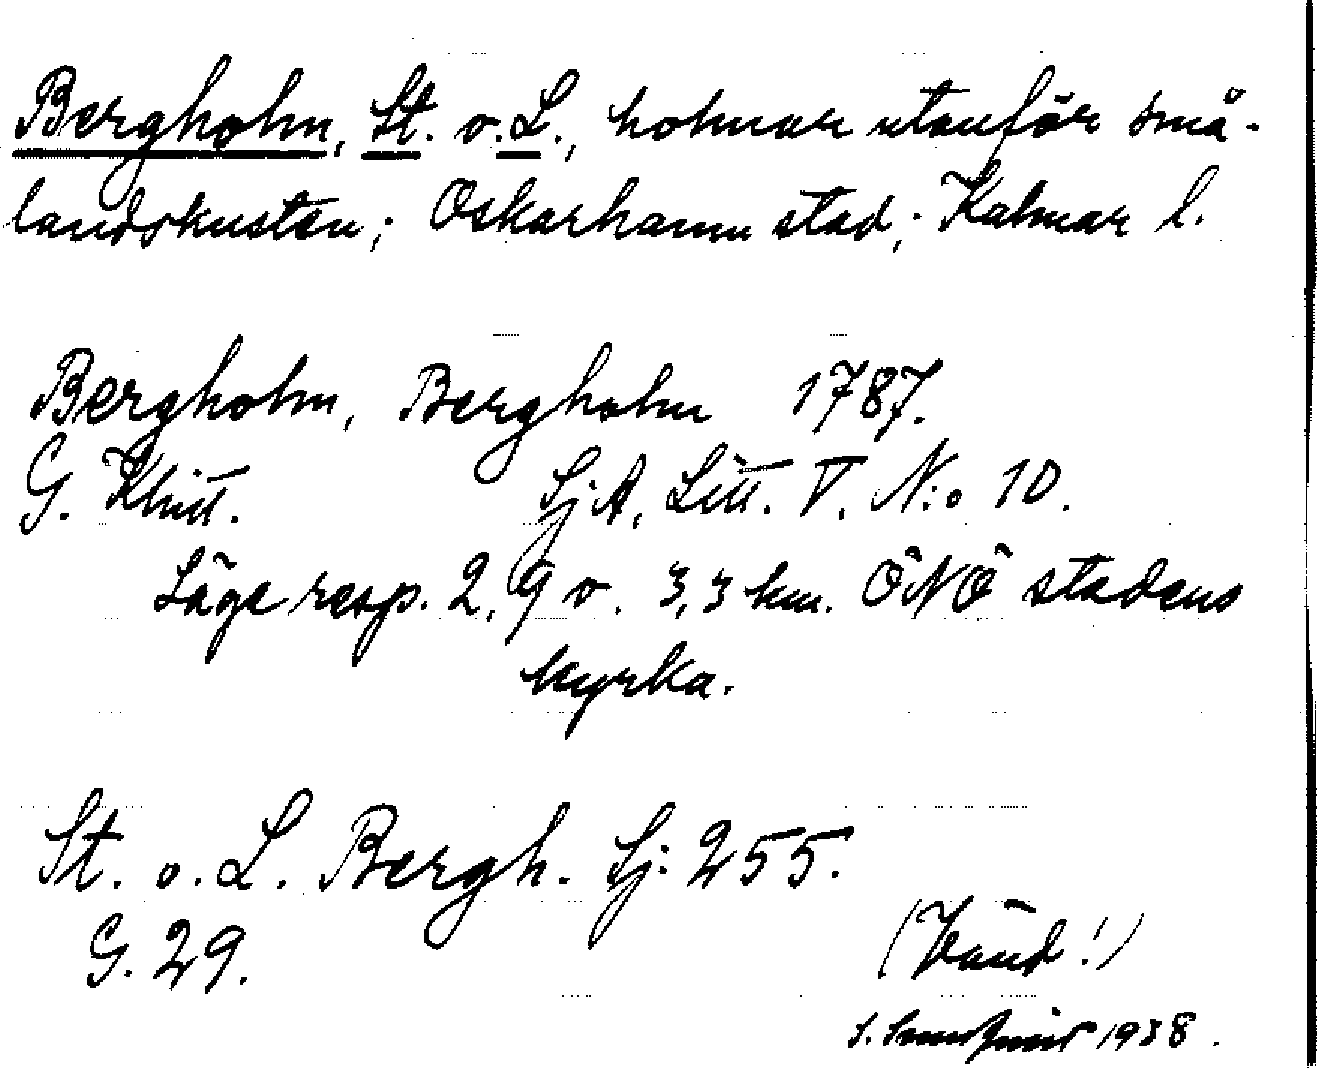 Bergholm, St. o. L., holmar utanför små-
landskusten; Oskarhamn stad; Kalmar l.
Bergholm, Bergholm 1787.
G. Klint. SjA, Litt. V. N:o 10.
Läge resp. 2,9 o. 3,3 km. ÖNÖ stadens
kyrka.
St. o. L. Bergh. Sj: 255.
G. 29.
(Vänd!)
S. 1938.